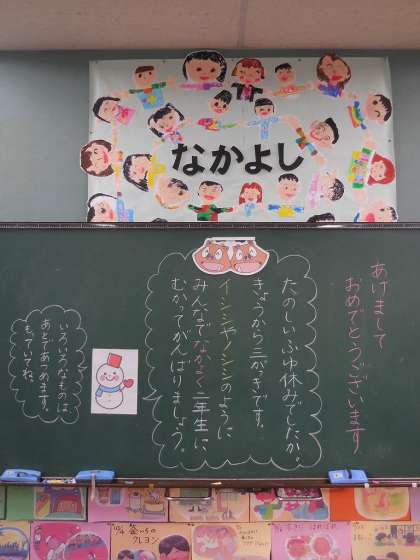 なかよし
あけまして
おめでとうございます
たのしいふゆ休みでしたか。
きょうから三がっきです。
イノシシやイノシシのように
みんなでなかよく二年生に
むかってがんばりましょう。
いろいろなものは
あとであつめます。
もっていてね。